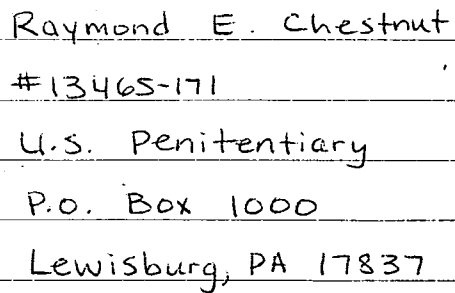 Raymond E. Chestnut
#13465-171
U.S. Penitentiary
P.O. Box 1000
Lewisburg, PA 17837